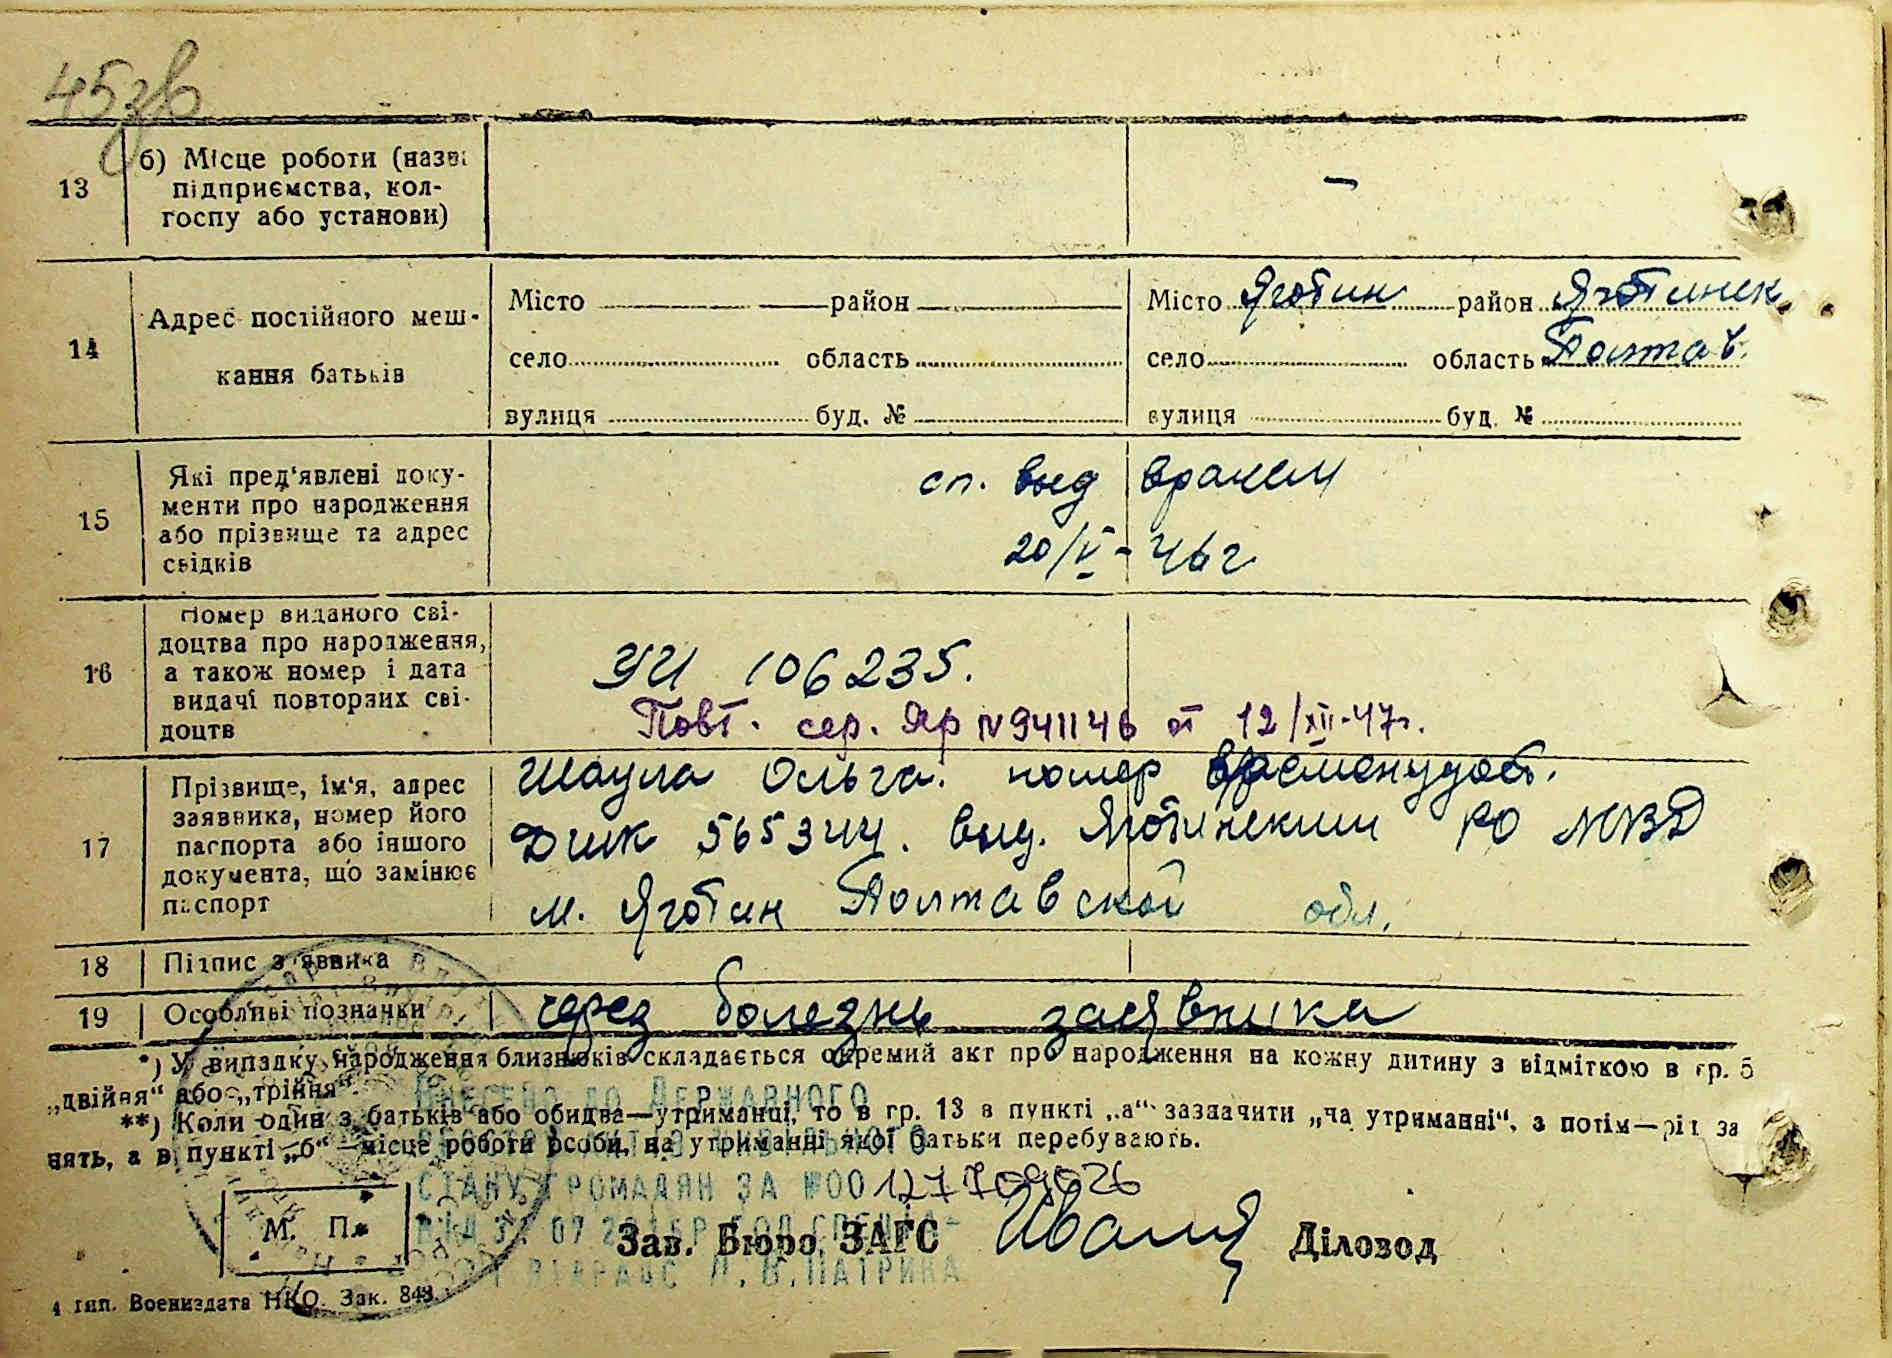 45зв
13
б) Місце роботи (назва
підприємства, кол-
госпу або установи)
–
14
Адрес постійного меш-
кання батьків
Місто район
село область
вулиця буд. №
Місто Яготин район Яготинск
село область Полтав.
вулиця буд. №
15
Які пред'явлені доку-
менти про народження
або прізвище та адрес
свідків
сп. выд врачем
20/V-46г
16
Номер виданого сві-
доцтва про народження,
а також номер і дата
видачі повторних сві-
доцтв
УИ 106235.
Повт. сер. Яр N 941146 от 12/XII-47г.
17
Прізвище, ім'я, адрес
заявника, номер його
паспорта або іншого
документа, що замінює
паспорт
Шаула Ольга. номер
565344. выд. Яготинским РО МВД
м. Яготин Полтавской обл.
18
Підпис заявника
19
Особливі позначки
через болезнь заявника
*) У випадку народження близнюків складається окремий акт про народження на кожну дитину з відміткою в гр. 5
„двійня“ або „трійня“
**) Коли один з батьків або обидва—утриманці, то в гр. 13 в пункті „а“ зазначити „на утриманні“, а потім—рід за
нять, а в пункті „б“—місце роботи особи, на утриманні якої батьки перебувають.
Внесено до Державного
стану громадян за №00127709026
М. П.
Зав. Бюро ЗАГС
Діловод
4 тип. Воениздата НКО. Зак. 843.